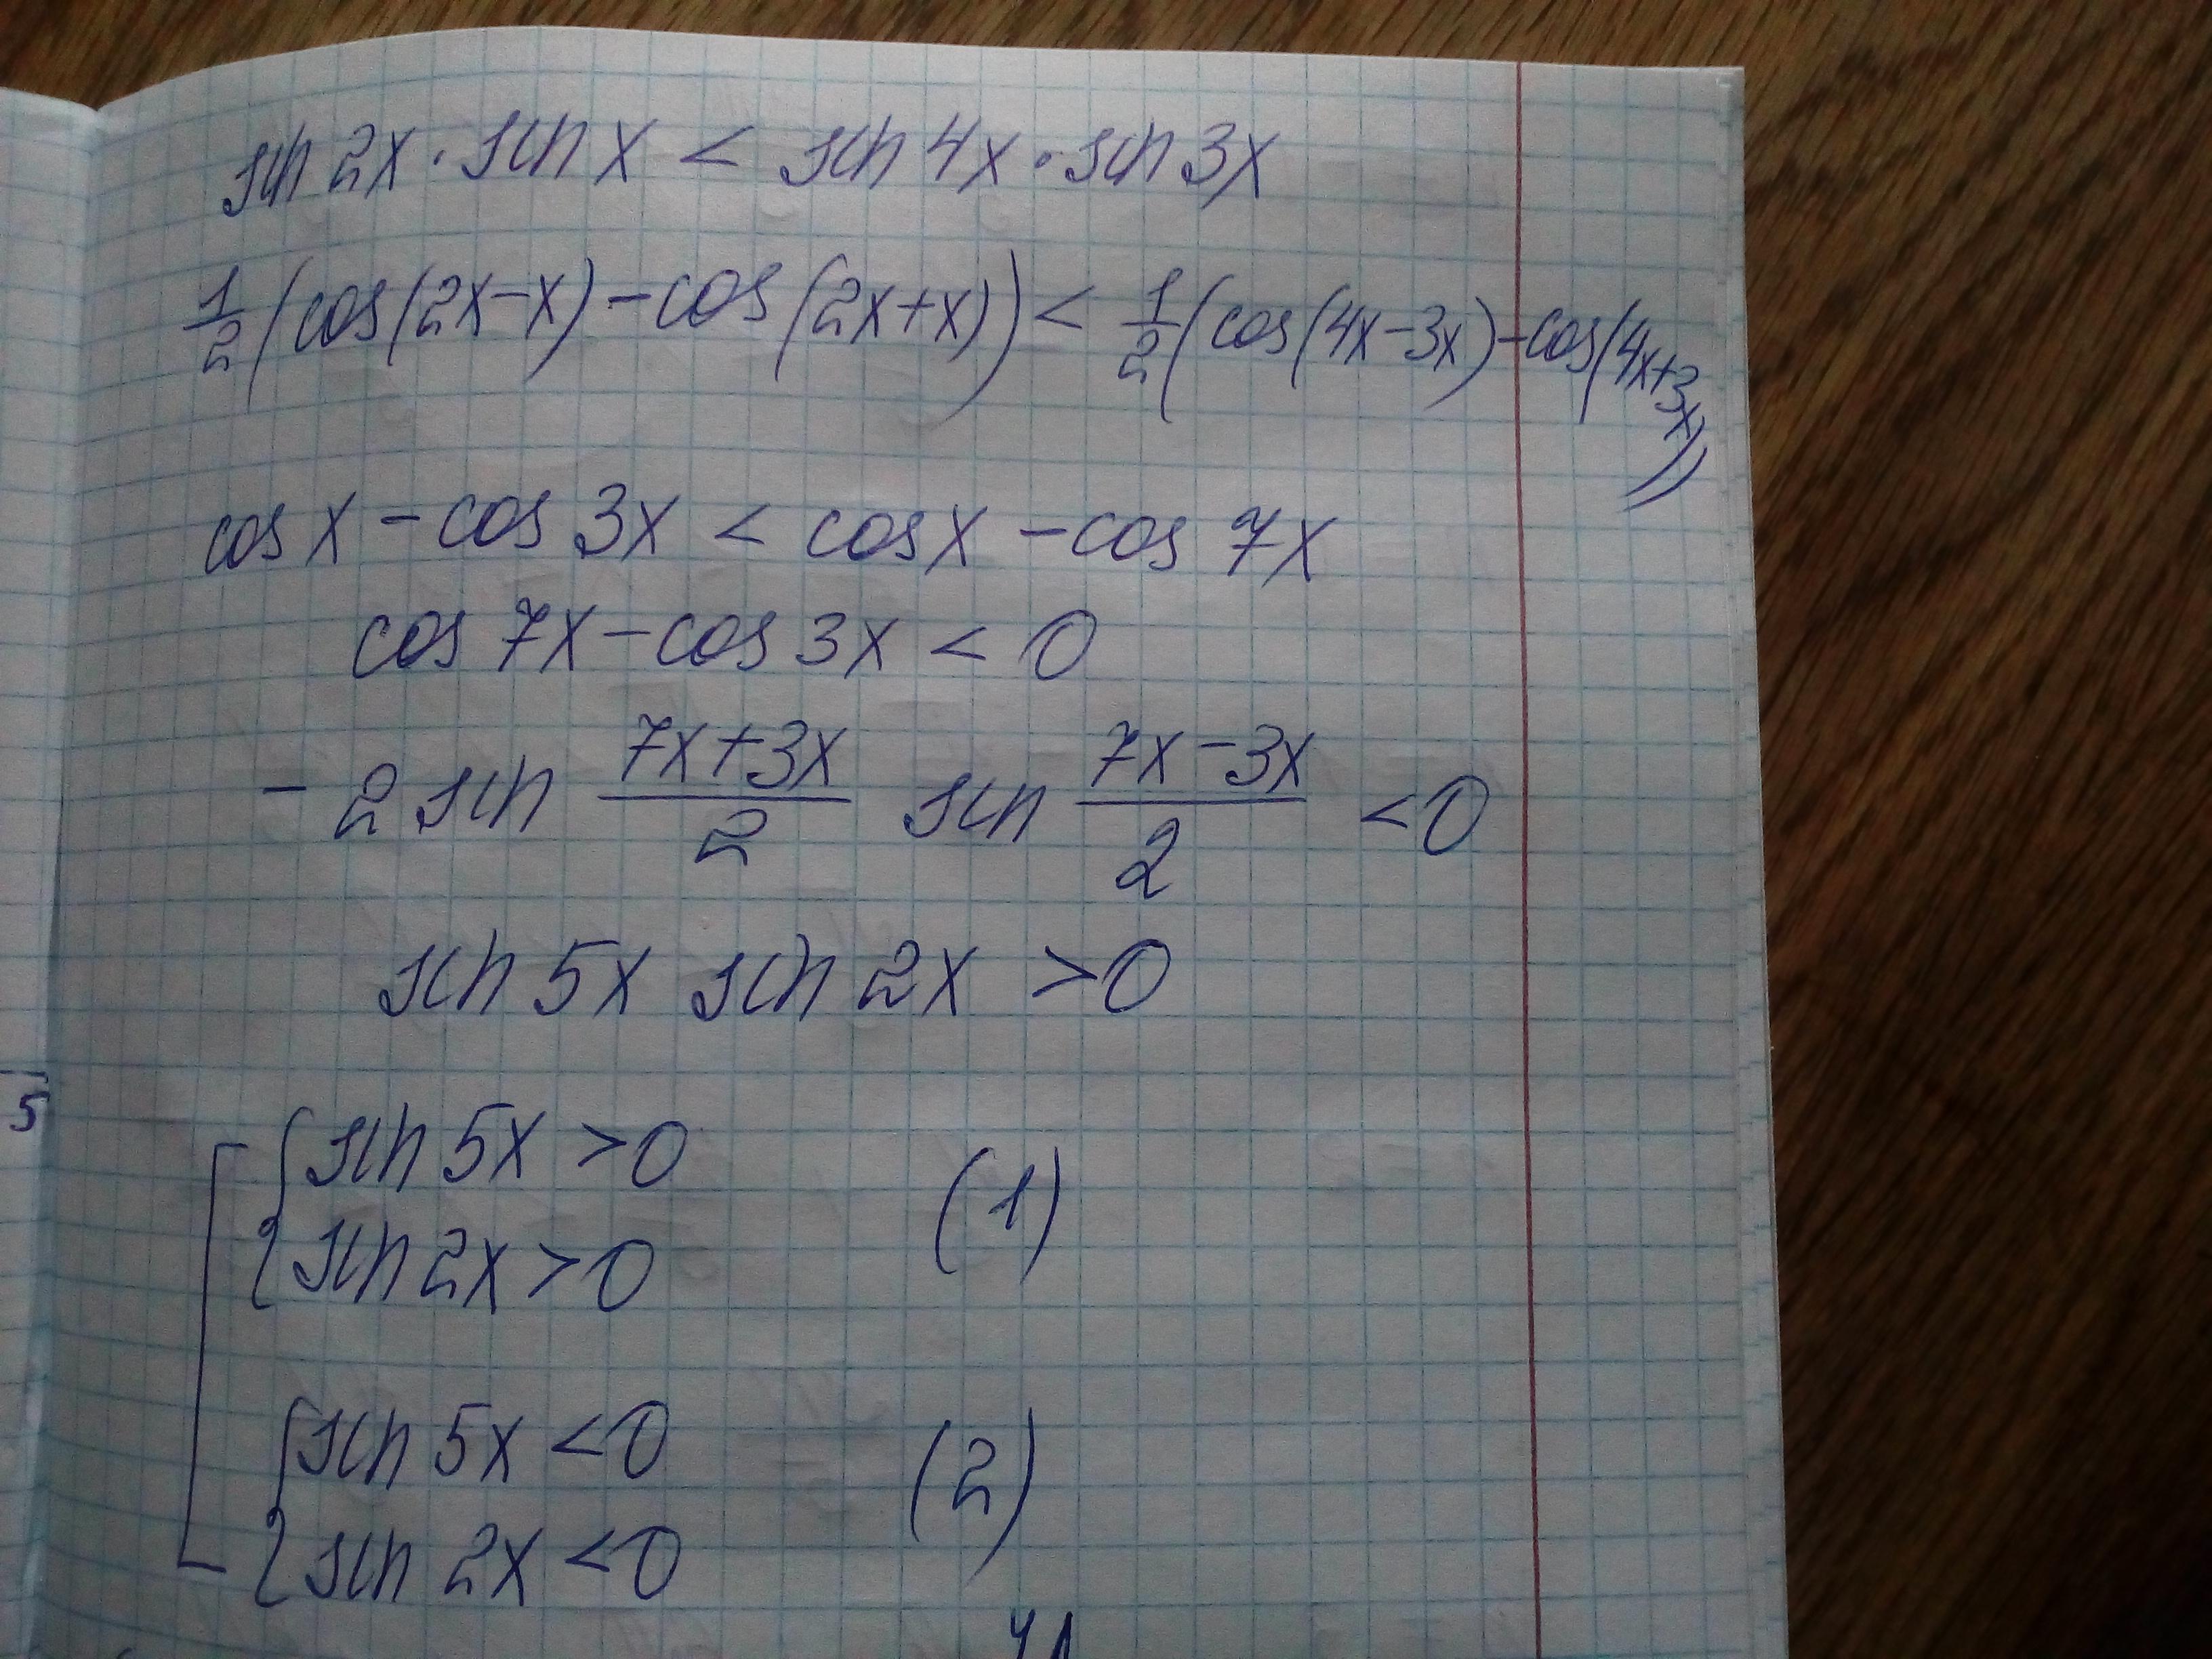 sin 2x · sin x < sin 4x · sin 3x
1/2 (cos(2x-x) - cos(2x+x)) < 1/2 (cos(4x-3x) - cos(4x+3x))
cos x - cos 3x < cos x - cos 7x
cos 7x - cos 3x < 0
- 2 sin (7x+3x)/2 sin (7x-3x)/2 < 0
sin 5x sin 2x > 0
[ { sin 5x > 0 (1)
sin 2x > 0
{ sin 5x < 0 (2)
sin 2x < 0
5